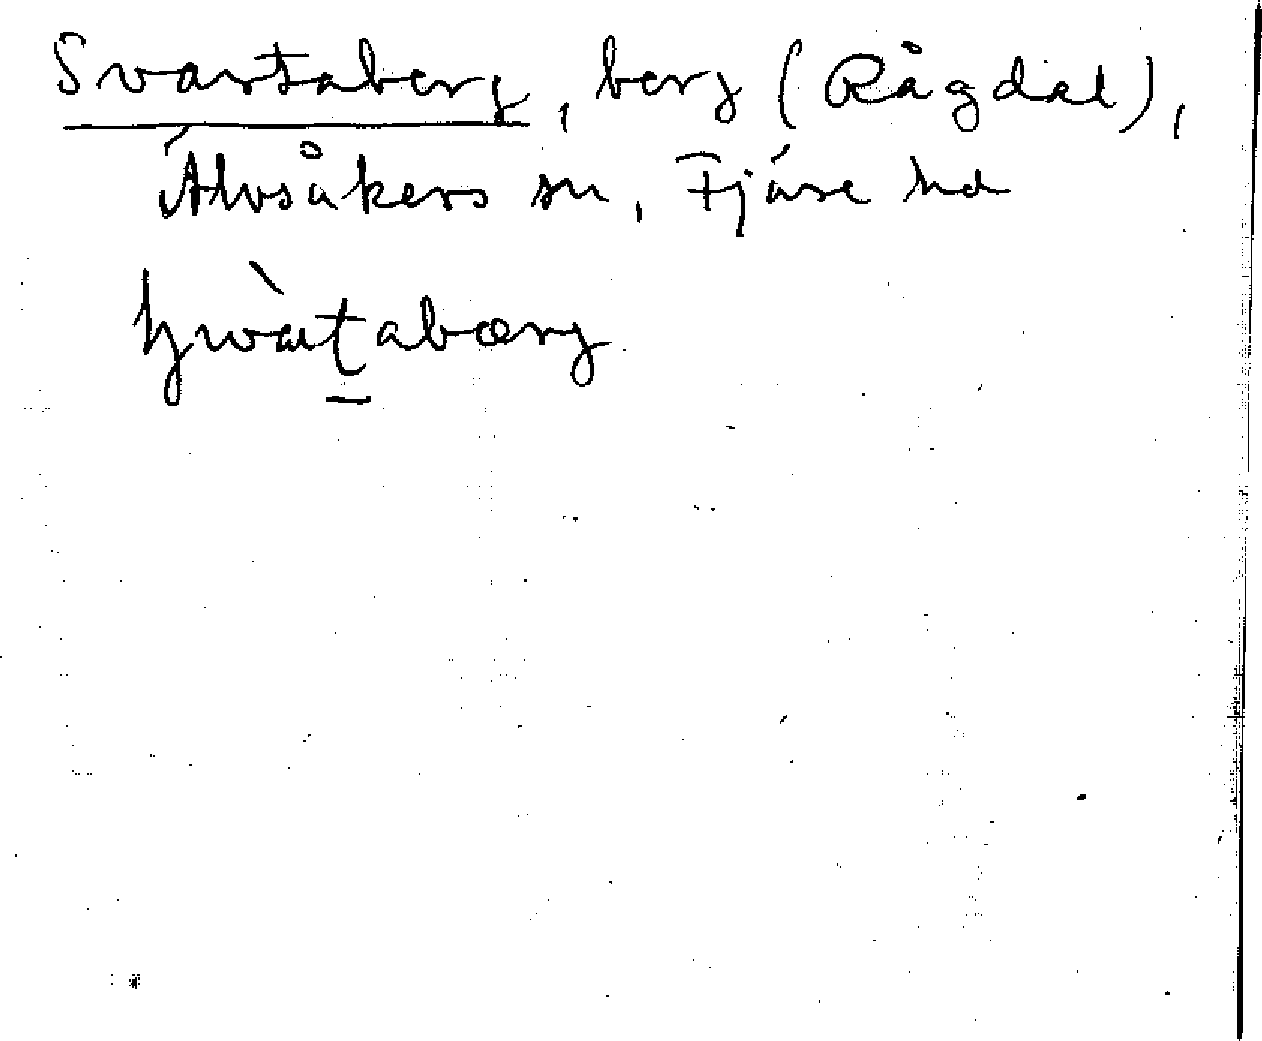 Svartaberg, berg (Rågdal),
Älvsåkers sn, Fjäre hd